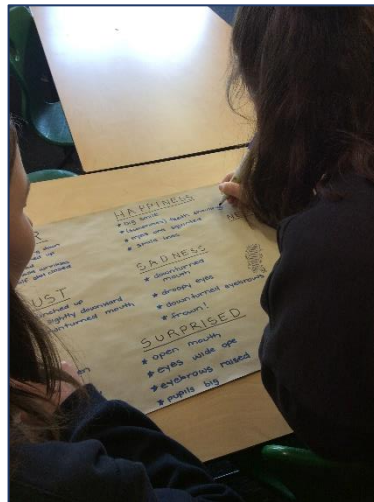 HAPPINESS
* big smile
* (sometimes) teeth
* eyes are squinted
* smile lines
NE
SADNESS
* downturned
mouth
* droopy eyes
* downturned eyebrows
* frown!
SURPRISED
* open mouth
* eyes wide ope
* eyebrows raised
* pupils big
R
down
ed up
UST
nched up
lightly downward
nturned mouth
en